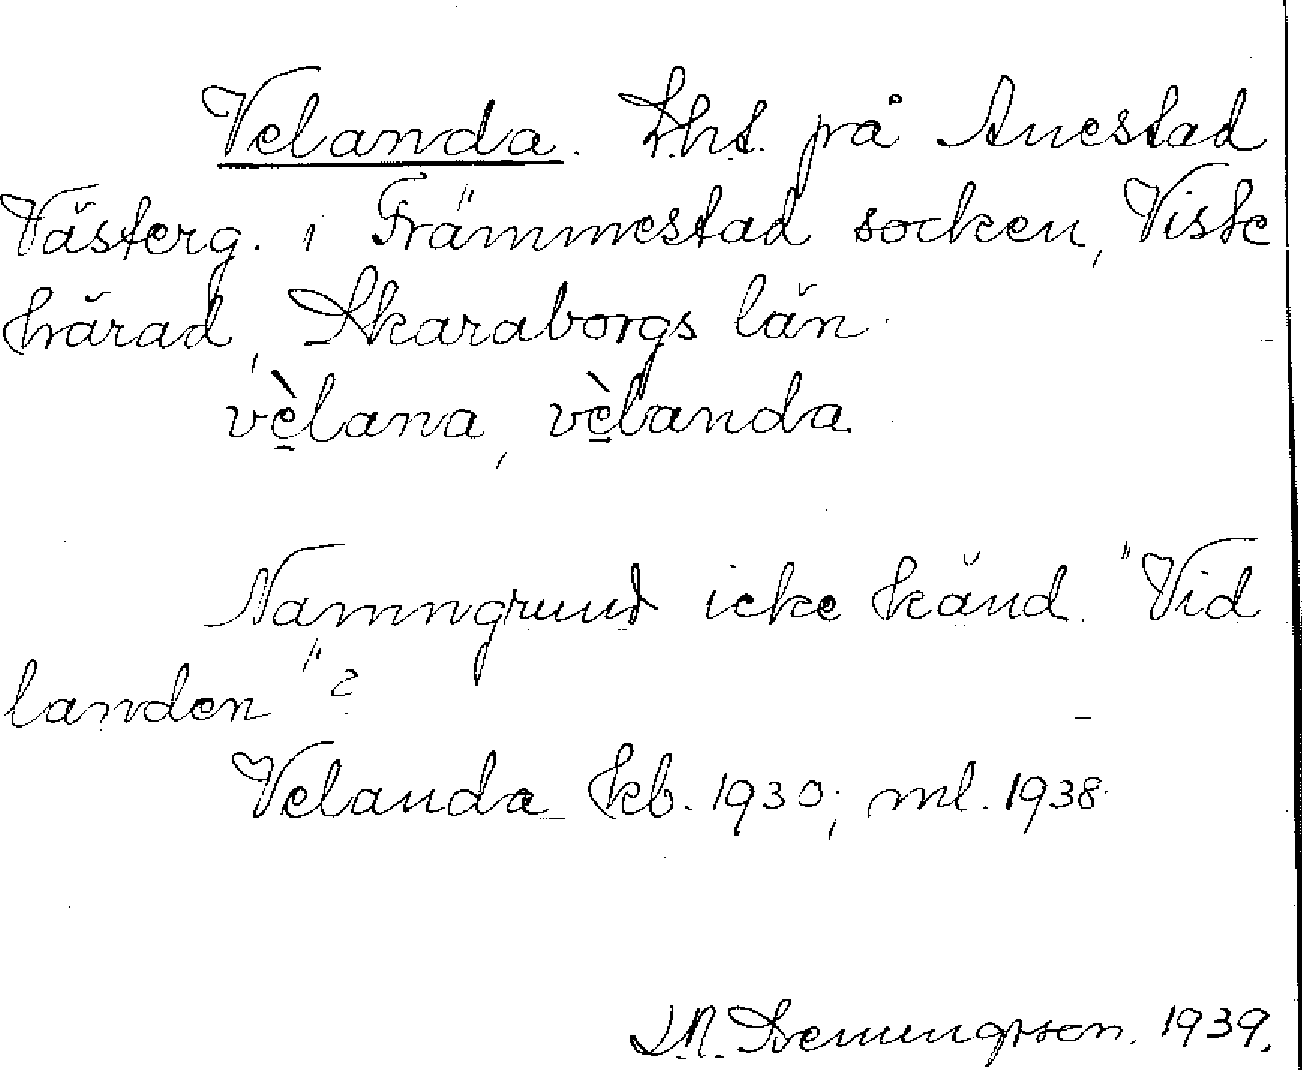 Velanda. Lht. på Anestad
Västerg. i Främmestad socken, Viste
härad, Skaraborgs län.
vè̠lana, vè̠landa.
Namngrund icke känd. "Vid
landen"?
Velanda kb. 1930; ml. 1938.
1939.